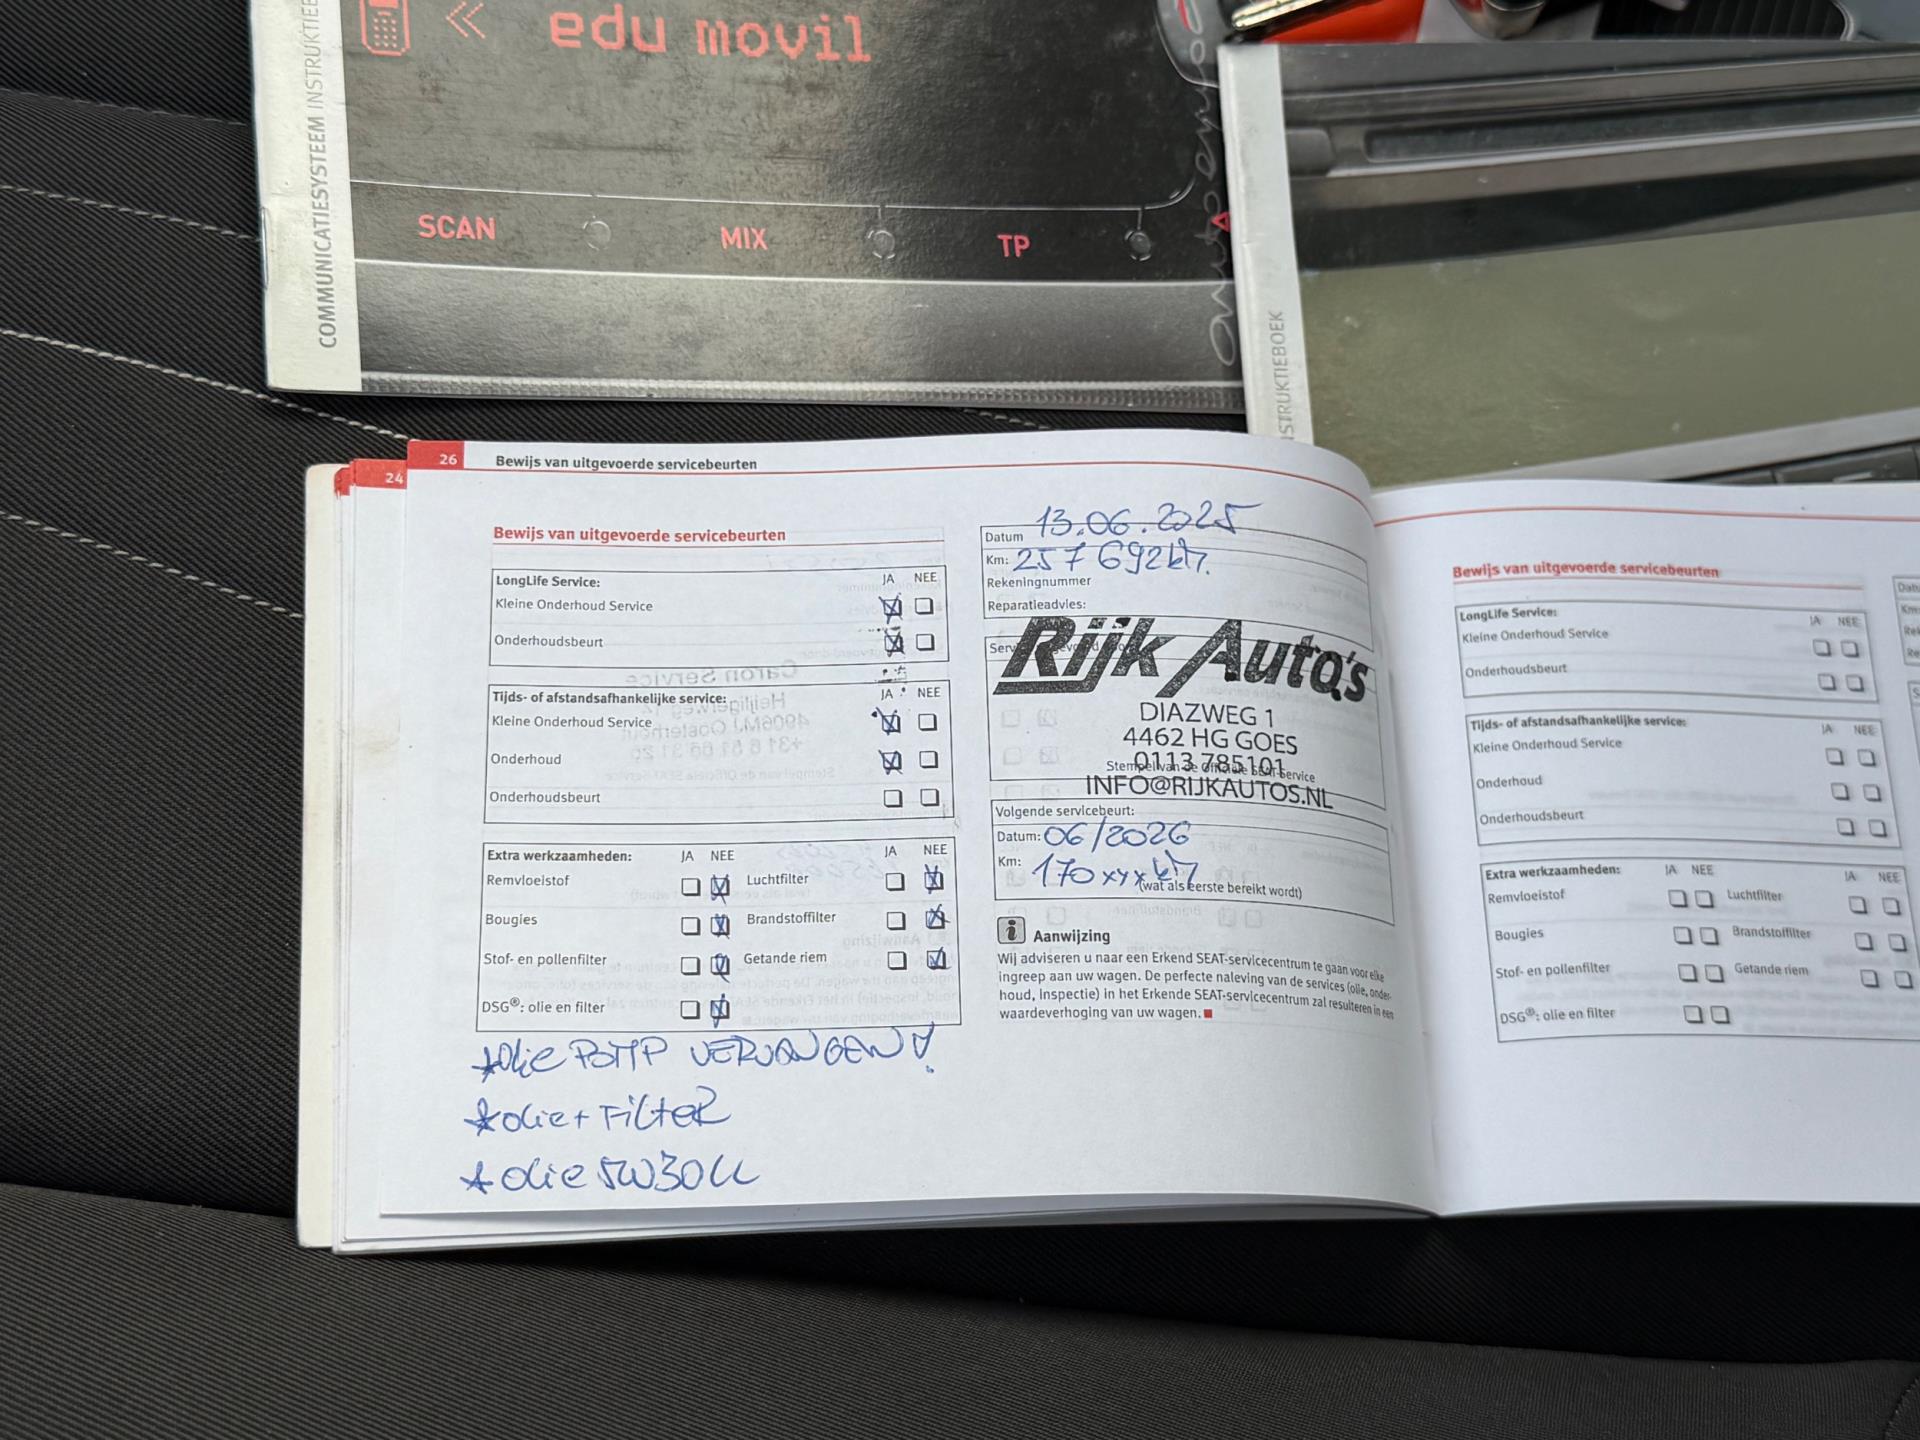 edu movil
COMMUNICATIESYSTEEM INSTRUKTIEB
SCAN
MIX
TP
STRUKTIEBOEK
24
26
Bewijs van uitgevoerde servicebeurten
Bewijs van uitgevoerde servicebeurten
LongLife Service:
JA NEE
Kleine Onderhoud Service
Onderhoudsbeurt
Tijds- of afstandsafhankelijke service:
JA NEE
Kleine Onderhoud Service
Onderhoud
Onderhoudsbeurt
Extra werkzaamheden:
JA NEE
JA NEE
Remvloeistof
Luchtfilter
Bougies
Brandstoffilter
Stof- en pollenfilter
Getande riem
DSG®: olie en filter
*Olie POMP VERVANGEN!
*olie+ FiLteR
*Olie 5W30LL
Datum 13.06.2025
Km: 257 692km.
Rekeningnummer
Reparatieadvies:
Rijk Auto's
DIAZWEG 1
4462 HG GOES
0113 785101
Stempel van de Officiële SEAT-Service
INFO@RIJKAUTOS.NL
Volgende servicebeurt:
Datum: 06/2026
Km: 170 xyx km
(wat als eerste bereikt wordt)
i Aanwijzing
Wij adviseren u naar een Erkend SEAT-servicecentrum te gaan voor elke
ingreep aan uw wagen. De perfecte naleving van de services (olie, onder-
houd, Inspectie) in het Erkende SEAT-servicecentrum zal resulteren in een
waardeverhoging van uw wagen.
Bewijs van uitgevoerde servicebeurten
LongLife Service:
JA NEE
Kleine Onderhoud Service
Onderhoudsbeurt
Tijds- of afstandsafhankelijke service:
JA NEE
Kleine Onderhoud Service
Onderhoud
Onderhoudsbeurt
Extra werkzaamheden:
JA NEE
JA NEE
Remvloeistof
Luchtfilter
Bougies
Brandstoffilter
Stof- en pollenfilter
Getande riem
DSG®: olie en filter